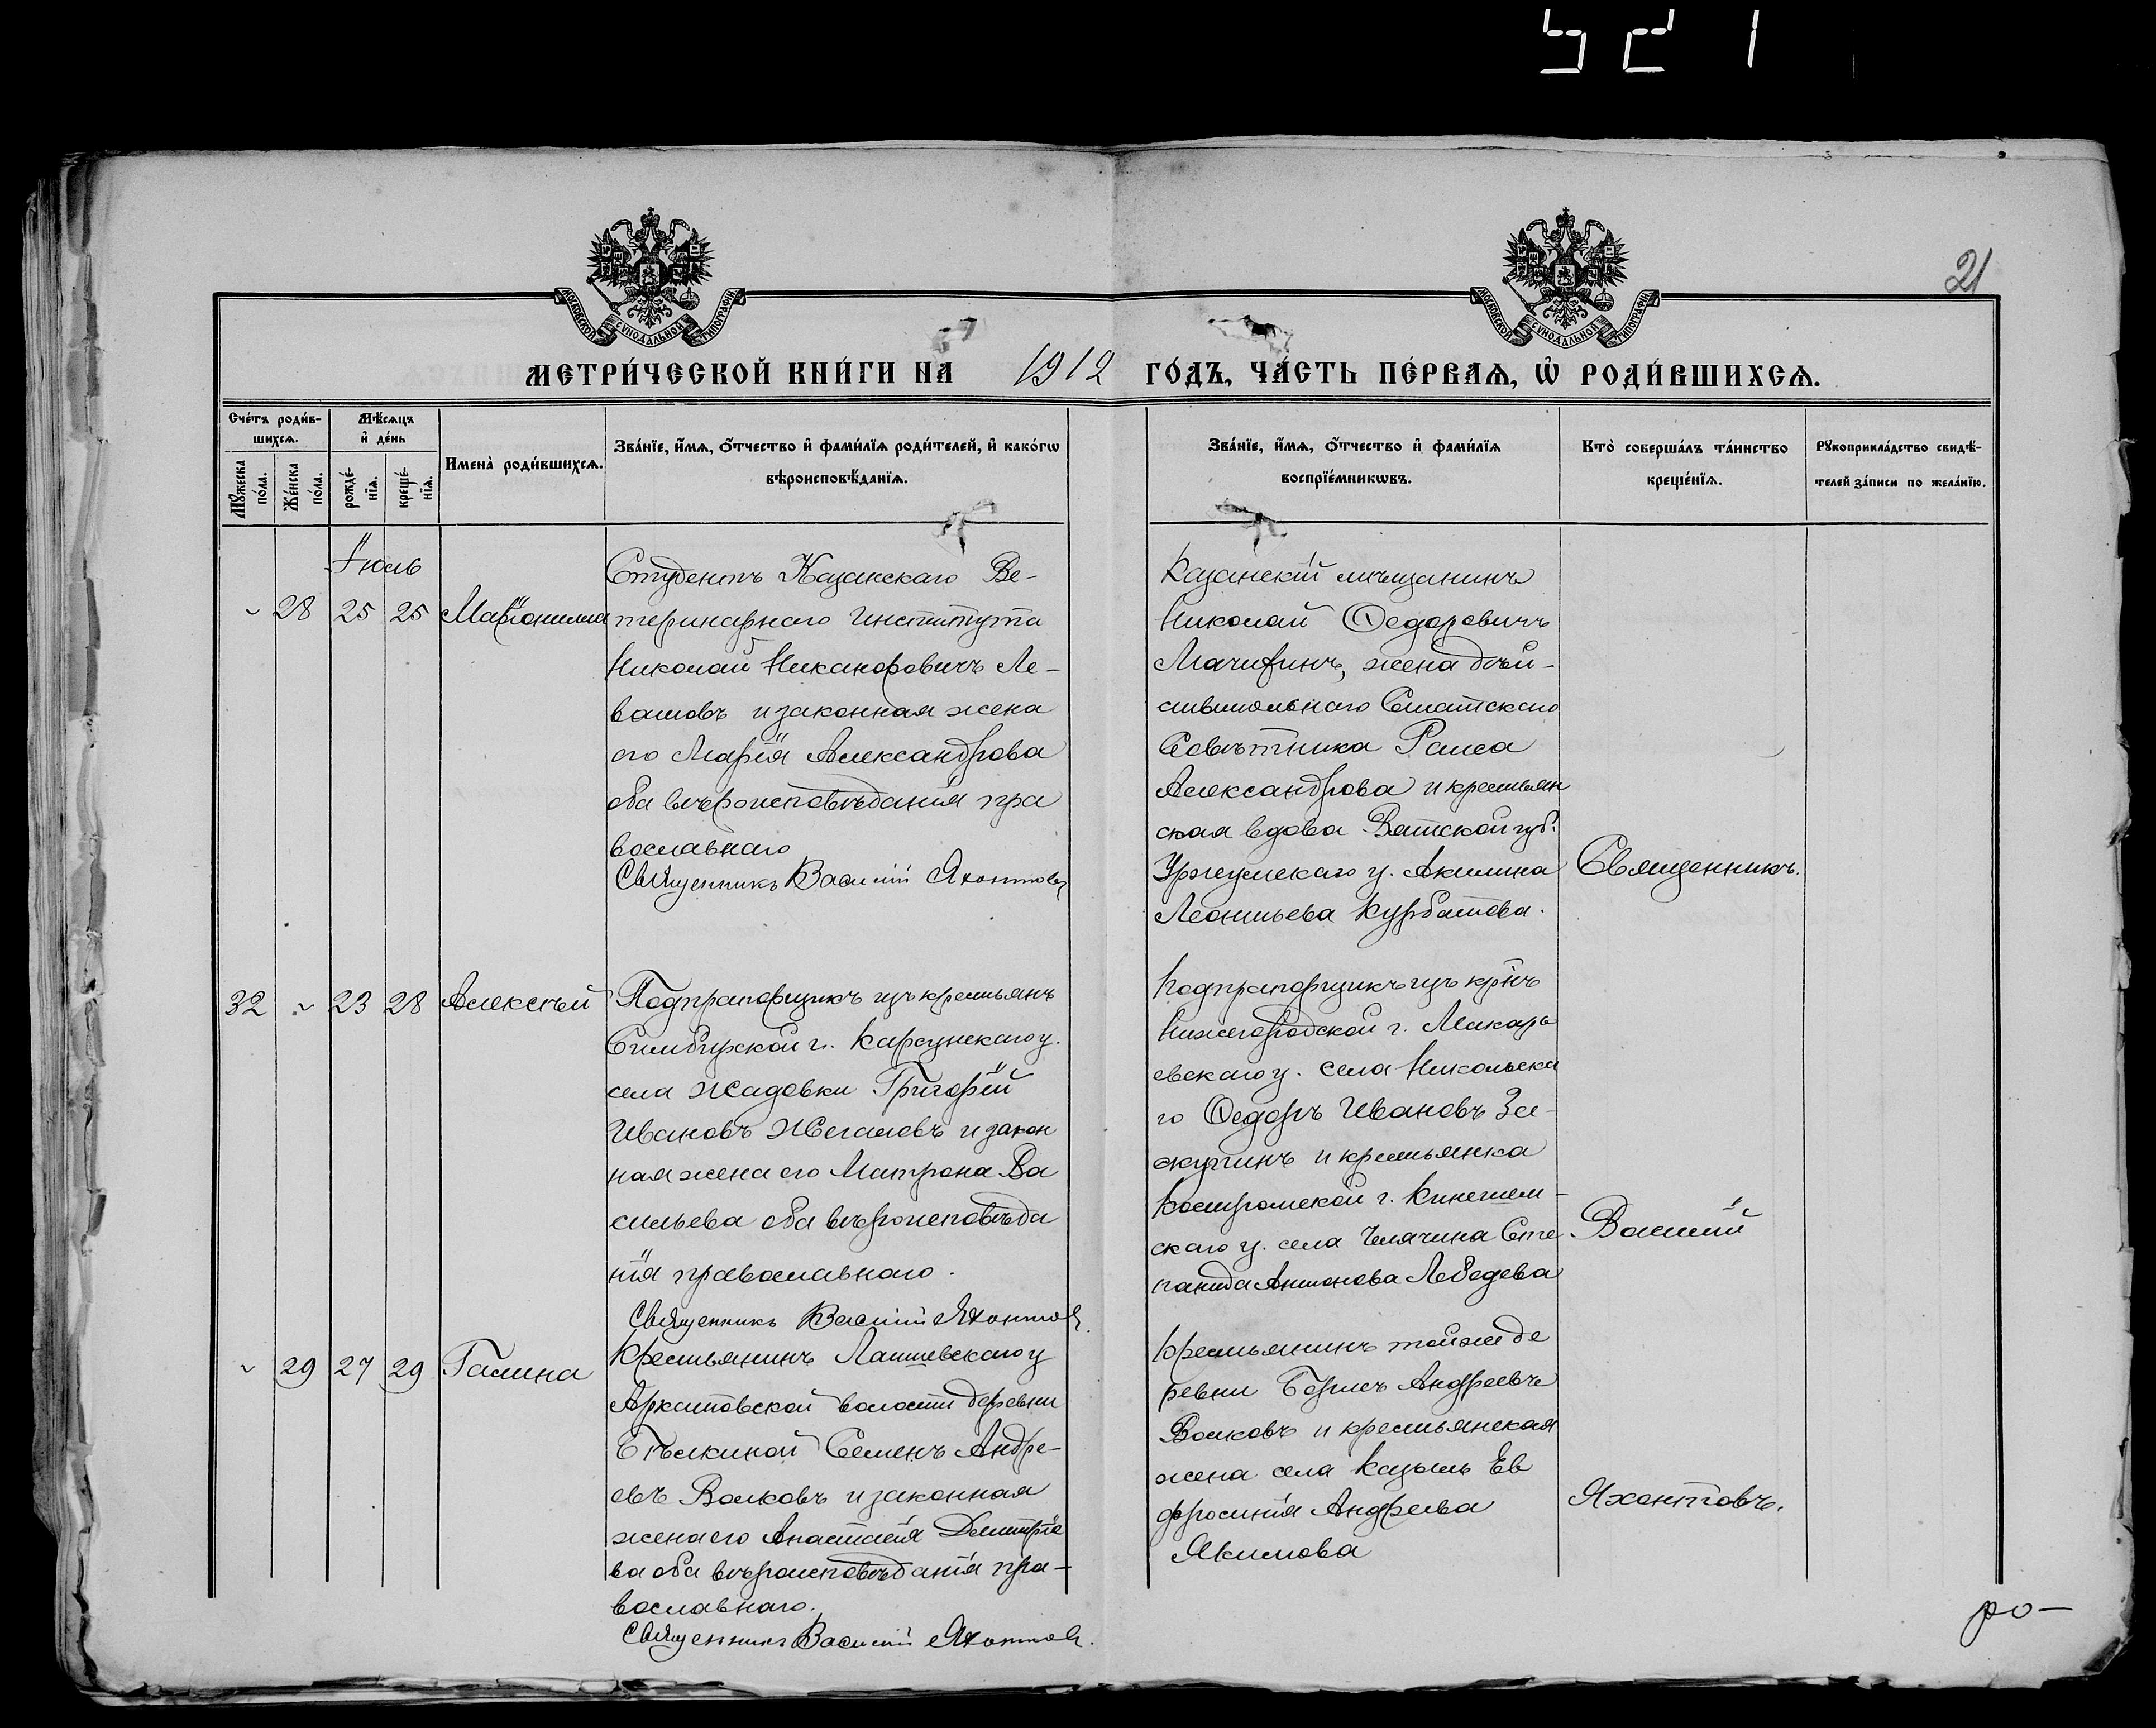 521
21
МОСКОВСКОЙ СѴНОДАЛЬНОЙ ТИПОГРАФІИ
МОСКОВСКОЙ СѴНОДАЛЬНОЙ ТИПОГРАФІИ
МЕТРИ́ЧЕСКОЙ КНИ́ГИ НА 1912 ГО́ДЪ, ЧА́СТЬ ПЕ́РВАѦ, Ѡ҆ РОДИ́ВШИХСѦ.
Сче́тъ роди́в-
шихсѧ.
Мꙋ́жеска по́ла.
Же́нска по́ла.
Мѣ́сѧцъ
и҆ де́нь
рожде́-
нїѧ.
креще́-
нїѧ.
Имена̀ роди́вшихсѧ.
Зва́нїе, и҆́мѧ, ѻ҆́тчество и҆ фами́лїѧ роди́телей, и҆ како́гѡ
вѣроисповѣ́данїѧ.
Зва́нїе, и҆́мѧ, ѻ҆́тчество и҆ фами́лїѧ
воспрїе́мникѡвъ.
Кто̀ соверша́лъ та́инство
креще́нїѧ.
Рꙋкоприкла́дство свидѣ́-
телей за́писи по жела́нїю.
Іюль
~ 28 25 25 Маріонилла
Студентъ Казанскаго Ве-
теринарнаго Института
Николай Никаноровичъ Ле-
вашовъ и законная жена
его Марія Александрова
оба вѣроисповѣданія пра
вославнаго
Священникъ Василій Яхонтовъ
Казанскій мѣщанинъ
Николай Ѳедоровичъ
Мачигинъ, жена дѣй-
ствительнаго Статскаго
Совѣтника Раиса
Александрова и крестьян
ская вдова Вятской губ.
Уржумскаго у. Акилина
Леонтьева Курбатова.
Священникъ
32 ~ 23 28 Алексѣй
Подпрапорщикъ изъ крестьянъ
Симбирской г. Карсунскаго у.
села Жадовки Григорій
Ивановъ Жегаловъ и закон
ная жена его Матрона Ва
сильева оба вѣроисповѣда
нія православнаго.
Священникъ Василій Яхонтовъ
Подпрапорщикъ изъ кр҃нъ
Нижегородской г. Макарь
евскаго у. села Никольска
го Ѳедоръ Ивановъ
и крестьянка
Костромской г. Кинешем-
скаго у. села Сте
панида Антонова Лебедева
Василій
~ 29 27 29 Галина
Крестьянинъ Лаишевскаго у
Аркатовской волости деревни
Бѣлкиной Семенъ Андре-
евъ Волковъ и законная
жена его Анастасія Димитріе
ва оба вѣроисповѣданія пра-
вославнаго.
Священникъ Василій Яхонтовъ.
Крестьянинъ той же де
ревни Борисъ Андреевъ
Волковъ и крестьянская
жена села Казыль Ев
фросинія Андреева
Якимова
Яхонтовъ.
ро-